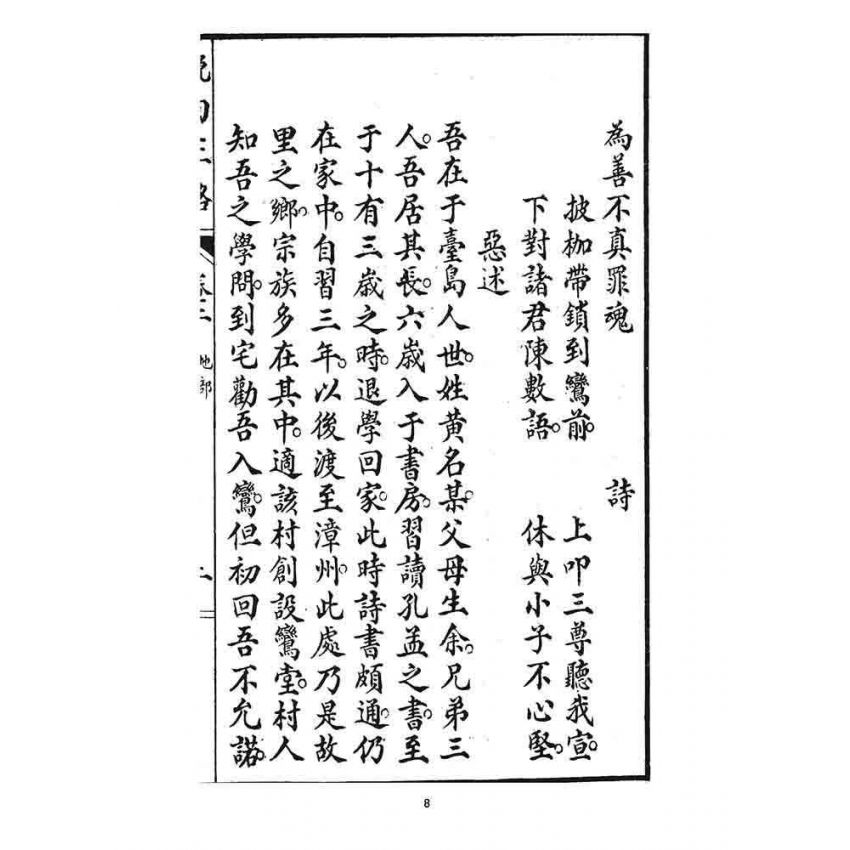 為善不真罪魂 詩
披枷帶鎖到鸞前。 上叩三尊聽我宣。
下對諸君陳數語。 休與小子不心堅。
惡述
吾在于臺島人世。姓黃名某。父母生余。兄弟三
人。吾居其長。六歲入于書房。習讀孔孟之書。至
于十有三歲之時。退學回家。此時詩書頗通。仍
在家中。自習三年。以後渡至漳州。此處乃是故
里之鄉。宗族多在其中。適該村創設鸞堂。村人
知吾之學問。到宅勸吾入鸞。但初回吾不允諾。
卷三 地部
8